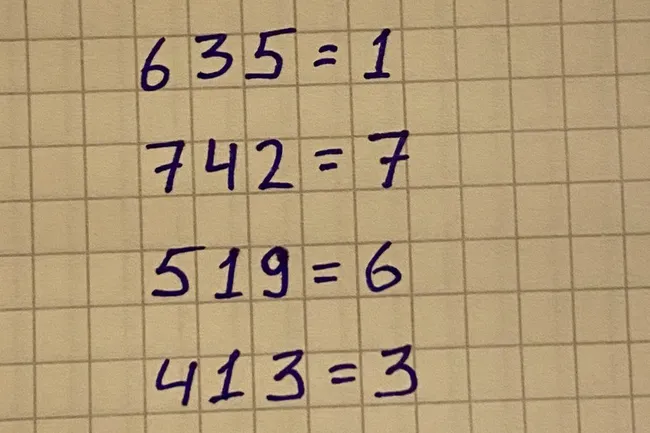 635=1
742=7
519=6
413=3